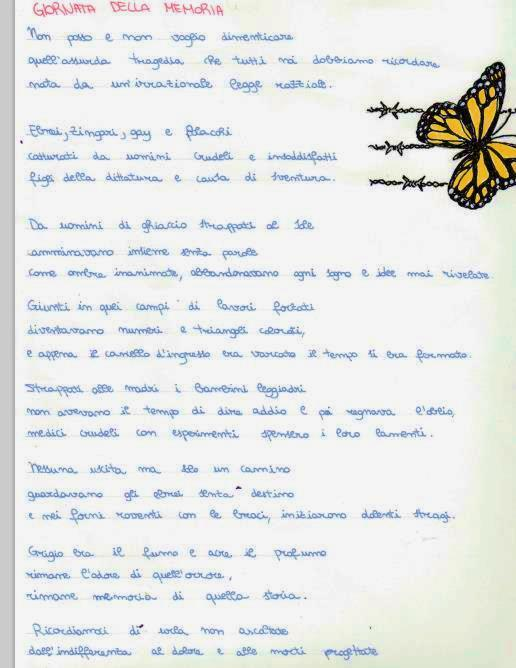 GIORNATA DELLA MEMORIA
Non posso e non voglio dimenticare
quell'assurda tragedia che tutti noi dobbiamo ricordare
nata da un'irrazionale legge razziale.
Ebrei, zingari, gay e polacchi
catturati da uomini crudeli e insoddisfatti
figli della dittatura e causa di sventura.
Da uomini di ghiaccio strappati al sole
camminavano insieme senza parole
come ombre inanimate, abbandonavano ogni sogno e idee mai rivelate.
Giunti in quei campi di lavori forzati
diventavano numeri e triangoli colorati,
e appena il cancello d'ingresso era varcato il tempo si era fermato.
Strappati alle madri i bambini leggiadri
non avevano il tempo di dire addio e poi regnava l'oblio,
medici crudeli con esperimenti spensero i loro lamenti.
Nessuna uscita ma solo un camino
guardavano gli ebrei senza destino
e nei forni roventi con le braci, iniziarono dolenti stragi.
Grigio era il fumo e acre il profumo
rimane l'odore di quell'orrore,
rimane memoria di quella storia.
Ricordiamoci di urla non ascoltate
dall'indifferenza al dolore e alle morti progettate